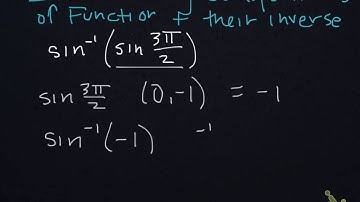 of Function & their inverse
sin⁻¹(sin 3π/2)
sin 3π/2 (0,-1) = -1
sin⁻¹(-1) -1